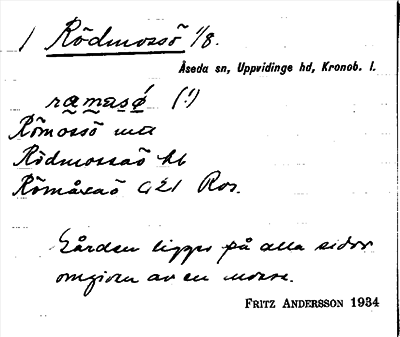 1 Rödmossö 1/8.
Åseda sn, Uppvidinge hd, Kronob. l.
ramasǿ (!)
Römossö uttal
Rödmossaö hb
Römåsaö G21 Ros.
Gården ligger på alla sidor
omgiven av en mosse.
FRITZ ANDERSSON 1934